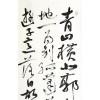 青山橫北郭
地一為別孤蓬
游子意落日故